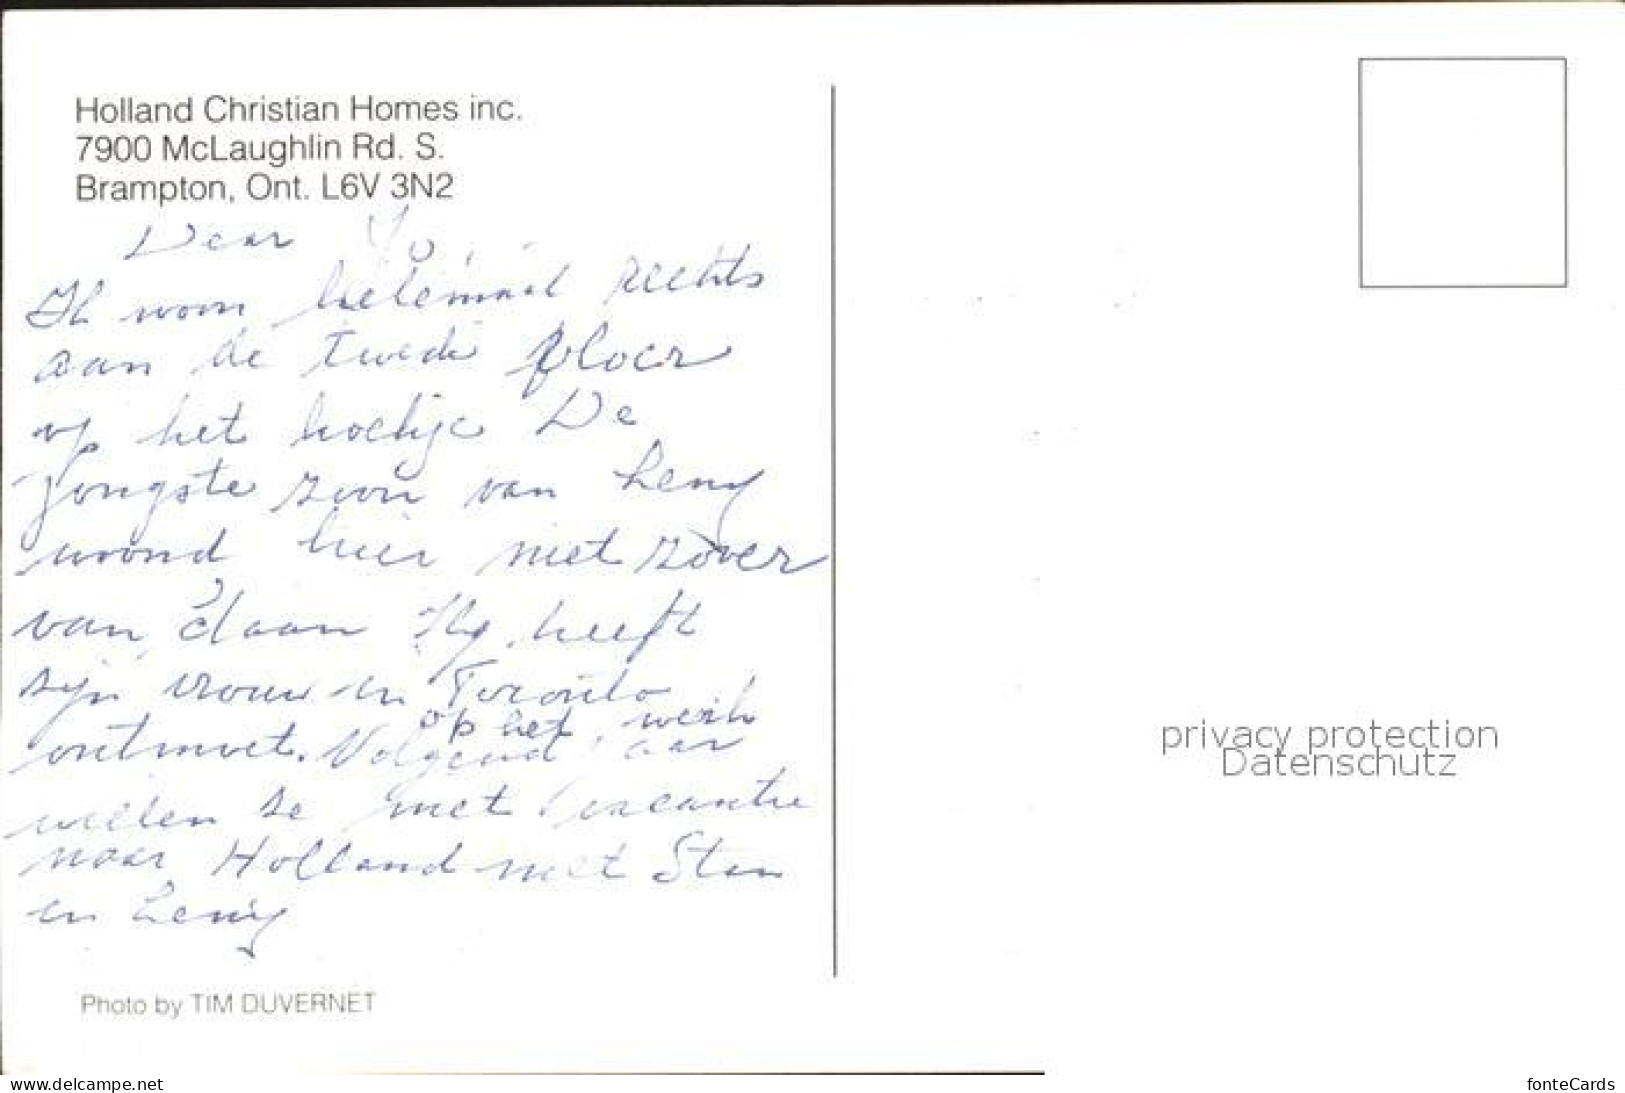 Holland Christian Homes inc.
7900 McLaughlin Rd. S.
Brampton, Ont. L6V 3N2
Dear
Ik woon helemaal rechts
aan de twede floer
op het hoekje De
jongste zoon van Leny
woond hier niet zover
van daan Hy heeft
zijn vrouw in Toronto
op het werk
ontmoet. Volgend aar
willen ze met vacantie
naar Holland met Stan
en Leny
Photo by TIM DUVERNET
privacy protection
Datenschutz
www.delcampe.net
fonteCards